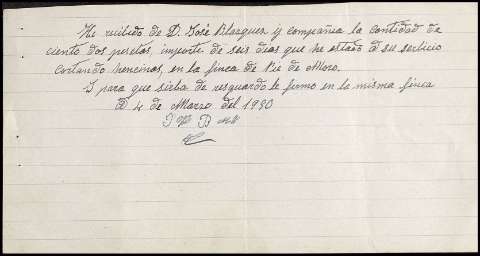 He recibido de D. José Blazquez y compañia la cantidad de
ciento dos pesetas, importe de seis dias que he estado a su servicio
cortando hencinas, en la finca de Pie de Moro.
I para que sirba de resguardo le firmo en la misma finca
a 4 de Marzo del 1930